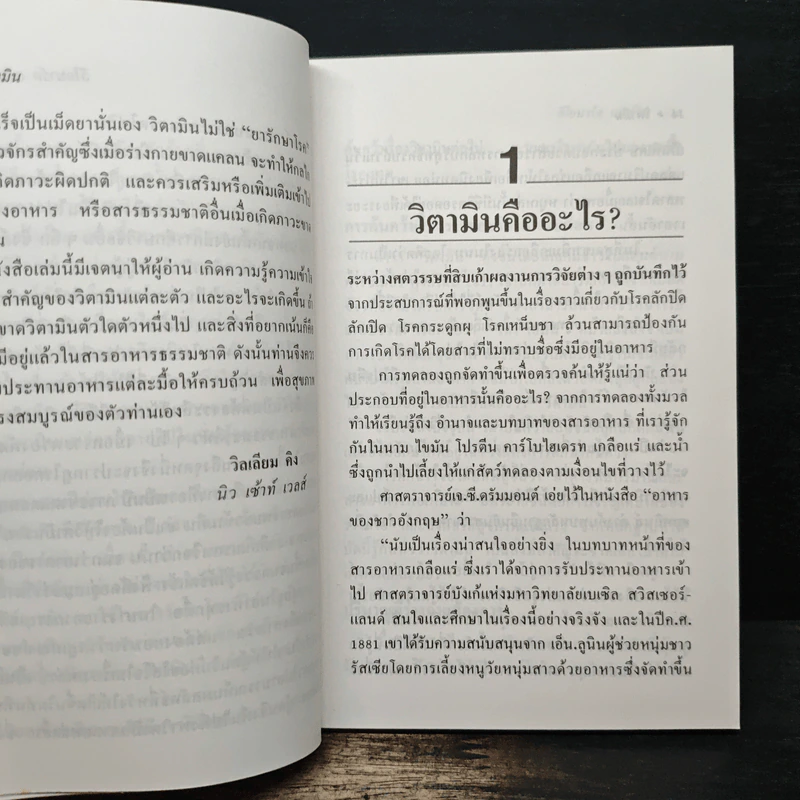 มิน
ร็จเป็นเม็ดยานั่นเอง วิตามินไม่ใช่ “ยารักษาโรค”
วจักรสำคัญซึ่งเมื่อร่างกายขาดแคลน จะทำให้กลไก
กิดภาวะผิดปกติ และควรเสริมหรือเพิ่มเติมเข้าไป
งอาหาร หรือสารธรรมชาติอื่นเมื่อเกิดภาวะขาด
น
ังสือเล่มนี้มีเจตนาให้ผู้อ่าน เกิดความรู้ความเข้าใจ
สำคัญของวิตามินแต่ละตัว และอะไรจะเกิดขึ้น ถ้า
ขาดวิตามินตัวใดตัวหนึ่งไป และสิ่งที่อยากเน้นก็คือ
มีอยู่แล้วในสารอาหารธรรมชาติ ดังนั้นท่านจึงควร
บประทานอาหารแต่ละมื้อให้ครบถ้วน เพื่อสุขภาพ
รงสมบูรณ์ของตัวท่านเอง
วิลเลียม คิง
นิว เซ้าท์ เวลส์
1
วิตามินคืออะไร?
ระหว่างศตวรรษที่สิบเก้าผลงานการวิจัยต่าง ๆ ถูกบันทึกไว้
จากประสบการณ์ที่พอกพูนขึ้นในเรื่องราวเกี่ยวกับโรคลักปิด
ลักเปิด โรคกระดูกผุ โรคเหน็บชา ล้วนสามารถป้องกัน
การเกิดโรคได้โดยสารที่ไม่ทราบชื่อซึ่งมีอยู่ในอาหาร
การทดลองถูกจัดทำขึ้นเพื่อตรวจค้นให้รู้แน่ว่า ส่วน
ประกอบที่อยู่ในอาหารนั้นคืออะไร? จากการทดลองทั้งมวล
ทำให้เรียนรู้ถึง อำนาจและบทบาทของสารอาหาร ที่เรารู้จัก
กันในนาม ไขมัน โปรตีน คาร์โบไฮเดรท เกลือแร่ และน้ำ
ซึ่งถูกนำไปเลี้ยงให้แก่สัตว์ทดลองตามเงื่อนไขที่วางไว้
ศาสตราจารย์เจ.ซี.ดรัมมอนต์ เอ่ยไว้ในหนังสือ “อาหาร
ของชาวอังกฤษ” ว่า
“นับเป็นเรื่องน่าสนใจอย่างยิ่ง ในบทบาทหน้าที่ของ
สารอาหารเกลือแร่ ซึ่งเราได้จากการรับประทานอาหารเข้า
ไป ศาสตราจารย์บังเก้แห่งมหาวิทยาลัยเบเซิล สวิสเซอร์-
แลนด์ สนใจและศึกษาในเรื่องนี้อย่างจริงจัง และในปีค.ศ.
1881 เขาได้รับความสนับสนุนจาก เอ็น.ลูนินผู้ช่วยหนุ่มชาว
รัสเซียโดยการเลี้ยงหนูวัยหนุ่มสาวด้วยอาหารซึ่งจัดทำขึ้น